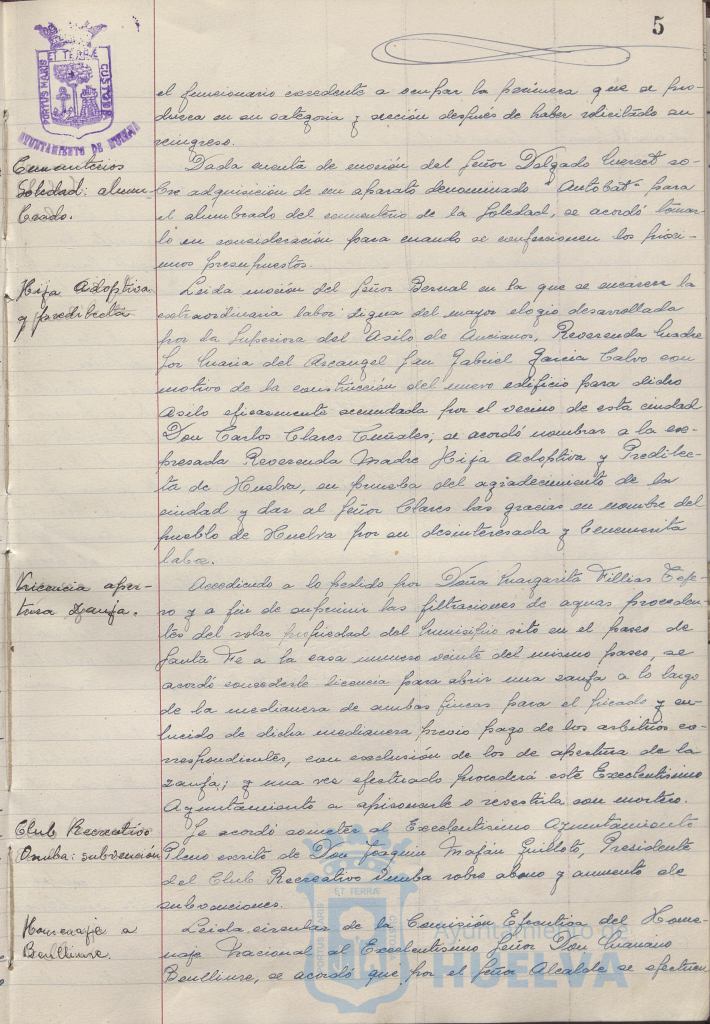 5
PORTUS MARIS ET TERRÆ CUSTODIA
AYUNTAMIENTO DE HUELVA
el funcionario excedente a ocupar la primera que se pro-
duzca en su categoria y sección después de haber solicitado su
reingreso.
Cementerios
Soledad: alum-
brado.
Dada cuenta de moción del Señor Delgado so-
bre adquisición de un aparato denominado "Autobat" para
el alumbrado del cementerio de la Soledad, se acordó tomar-
lo en consideración para cuando se confeccionen los próxi-
mos presupuestos.
Hija Adoptiva
y predilecta
Leida moción del Señor Bernal en la que se encarece la
extraordinaria labor digna del mayor elogio desarrollada
por la Superiora del Asilo de Ancianos, Reverenda Madre
Sor Maria del Arcangel San Gabriel Garcia Calvo con
motivo de la construcción del nuevo edificio para dicho
Asilo eficazmente secundada por el vecino de esta ciudad
Don Carlos Clares, se acordó nombrar a la ex-
presada Reverenda Madre Hija Adoptiva y Predilec-
ta de Huelva, en prueba del agradecimiento de la
ciudad y dar al Señor Clares las gracias en nombre del
pueblo de Huelva por su desinteresada y benemerita
labor.
Licencia aper-
tura zanja.
Accediendo a lo pedido por Doña Margarita Fillias Teje-
ro y a fin de suprimir las filtraciones de aguas proceden-
tes del solar propiedad del Municipio sito en el paseo de
Santa Fe a la casa numero veinte del mismo paseo, se
acordó concederle licencia para abrir una zanja a lo largo
de la medianera de ambas fincas para el picado y en-
lucido de dicha medianera previo pago de los arbitrios co-
rrespondientes, con exclusión de los de apertura de la
zanja; y una vez efectuado procederá este Excelentisimo
Ayuntamiento a apisonarla o revestirla con mortero.
Club Recreativo
Onuba: subvención
Se acordó someter al Excelentisimo Ayuntamiento
Pleno escrito de Don Joaquin Mafán Guillote, Presidente
del Club Recreativo Onuba sobre abono y aumento de
subvenciones.
Homenaje a
Benlliure.
Leida circular de la Comisión Ejecutiva del Home-
naje Nacional al Excelentisimo Señor Don Mariano
Benlliure, se acordó que por el Señor Alcalde se efectuen
Ayuntamiento de
HUELVA